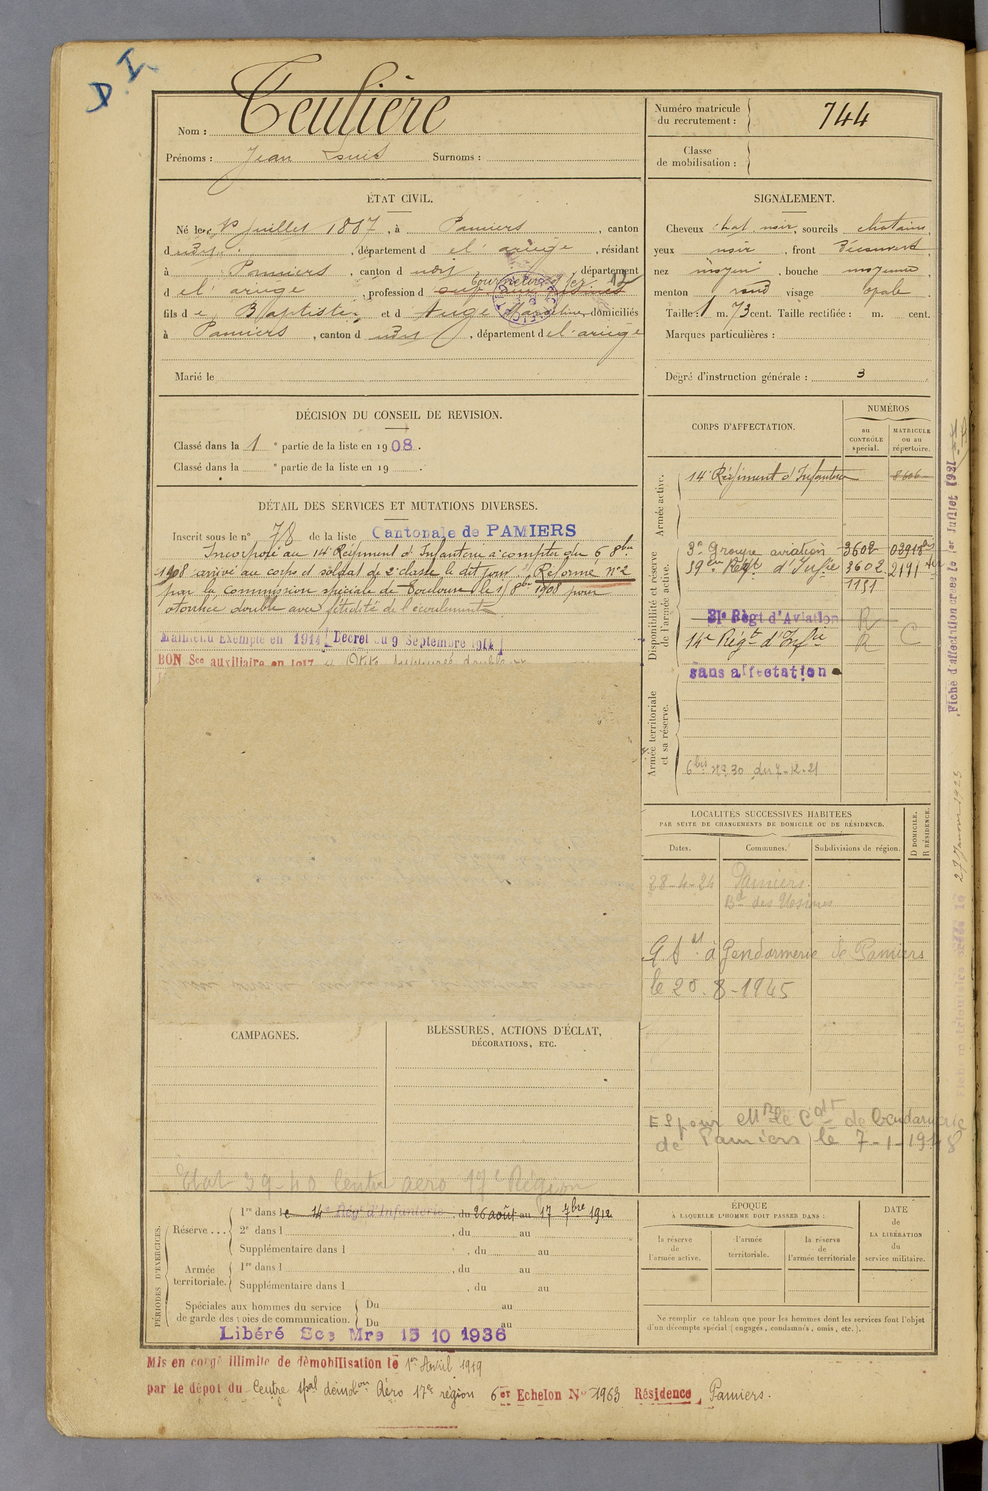 D I
Nom : Teulière
Prénoms : Jean Louis Surnoms :
Numéro matricule du recrutement : 744
Classe de mobilisation :
ÉTAT CIVIL.
Né le juillet 1887, à Pamiers, canton
d udit, département d el'ariège, résidant
à Pamiers, canton d udit, département
d el'ariège, profession d
fils de Baptiste et d domiciliés
à Pamiers, canton d udit, département d el'ariège
Marié le
SIGNALEMENT.
Cheveux chat. noir, sourcils chatains,
yeux noir, front découvert
nez moyen, bouche moyenne,
menton rond visage ovale.
Taille : 1 m. 73 cent. Taille rectifiée : m. cent.
Marques particulières :
Degré d'instruction générale : 3
DÉCISION DU CONSEIL DE REVISION.
Classé dans la 1 e partie de la liste en 1908.
Classé dans la e partie de la liste en 19 .
DÉTAIL DES SERVICES ET MUTATIONS DIVERSES.
Inscrit sous le n° 78 de la liste Cantonale de PAMIERS
Incorporé au 14e Régiment d'Infanterie à compter du 6 8bre
1908 arrivé au corps et soldat de 2e classe le dit jour Réformé n°2
par la commission spéciale de Toulouse le 8bre 1908 pour
otorrhée double avec fétidité de l'écoulement
Maintenu Exempté en 1914 Décret du 9 Septembre 1914
BON Sce auxiliaire en 1917
CORPS D'AFFECTATION.
NUMÉROS
au CONTRÔLE spécial.
MATRICULE ou au répertoire.
Armée active.
14e Régiment d'Infanterie
Disponibilité et réserve de l'armée active.
3e Groupe aviation 3602
59e Régt d'Infie 3602 2191
1151
31e Règt d'Aviation R
14e Régt d'Infie R C
sans affectation
Armée territoriale et sa réserve.
6bre n° 30 du 7-12-21
Fiche d'affectation créée le 1er Juillet 1921
27 Janvier 1923
LOCALITÉS SUCCESSIVES HABITÉES
PAR SUITE DE CHANGEMENTS DE DOMICILE OU DE RÉSIDENCE.
Dates. Communes. Subdivisions de région. D DOMICILE. R RÉSIDENCE.
28-4-24 Pamiers
Bd des Usines
à Gendarmerie de Pamiers
le 20-8-1945
E S pour Mr le Cdt de Gendarmerie
de Pamiers le 7-1-1948
CAMPAGNES.
BLESSURES, ACTIONS D'ÉCLAT,
DÉCORATIONS, ETC.
Etat 39-40 Centre aéro 17e Région
PÉRIODES D'EXERCICES.
Réserve ... 1re dans le 14e Régt d'Infanterie, du 26 août au 17 7bre 1912
2e dans l , du au
Supplémentaire dans l , du au
Armée territoriale. 1re dans l , du au
Supplémentaire dans l , du au
Spéciales aux hommes du service de garde des voies de communication. Du au
Du au
Libéré Sce Mre 15 10 1936
ÉPOQUE
À LAQUELLE L'HOMME DOIT PASSER DANS :
la réserve de l'armée active.
l'armée territoriale.
la réserve de l'armée territoriale
DATE de LA LIBÉRATION du service militaire.
Ne remplir ce tableau que pour les hommes dont les services font l'objet
d'un décompte spécial (engagés, condamnés, omis, etc.).
Mis en congé illimité de démobilisation le 1er Avril 1919
par le dépôt du Centre démobon Aéro 17e région 6er Echelon N° 1963 Résidence Pamiers.